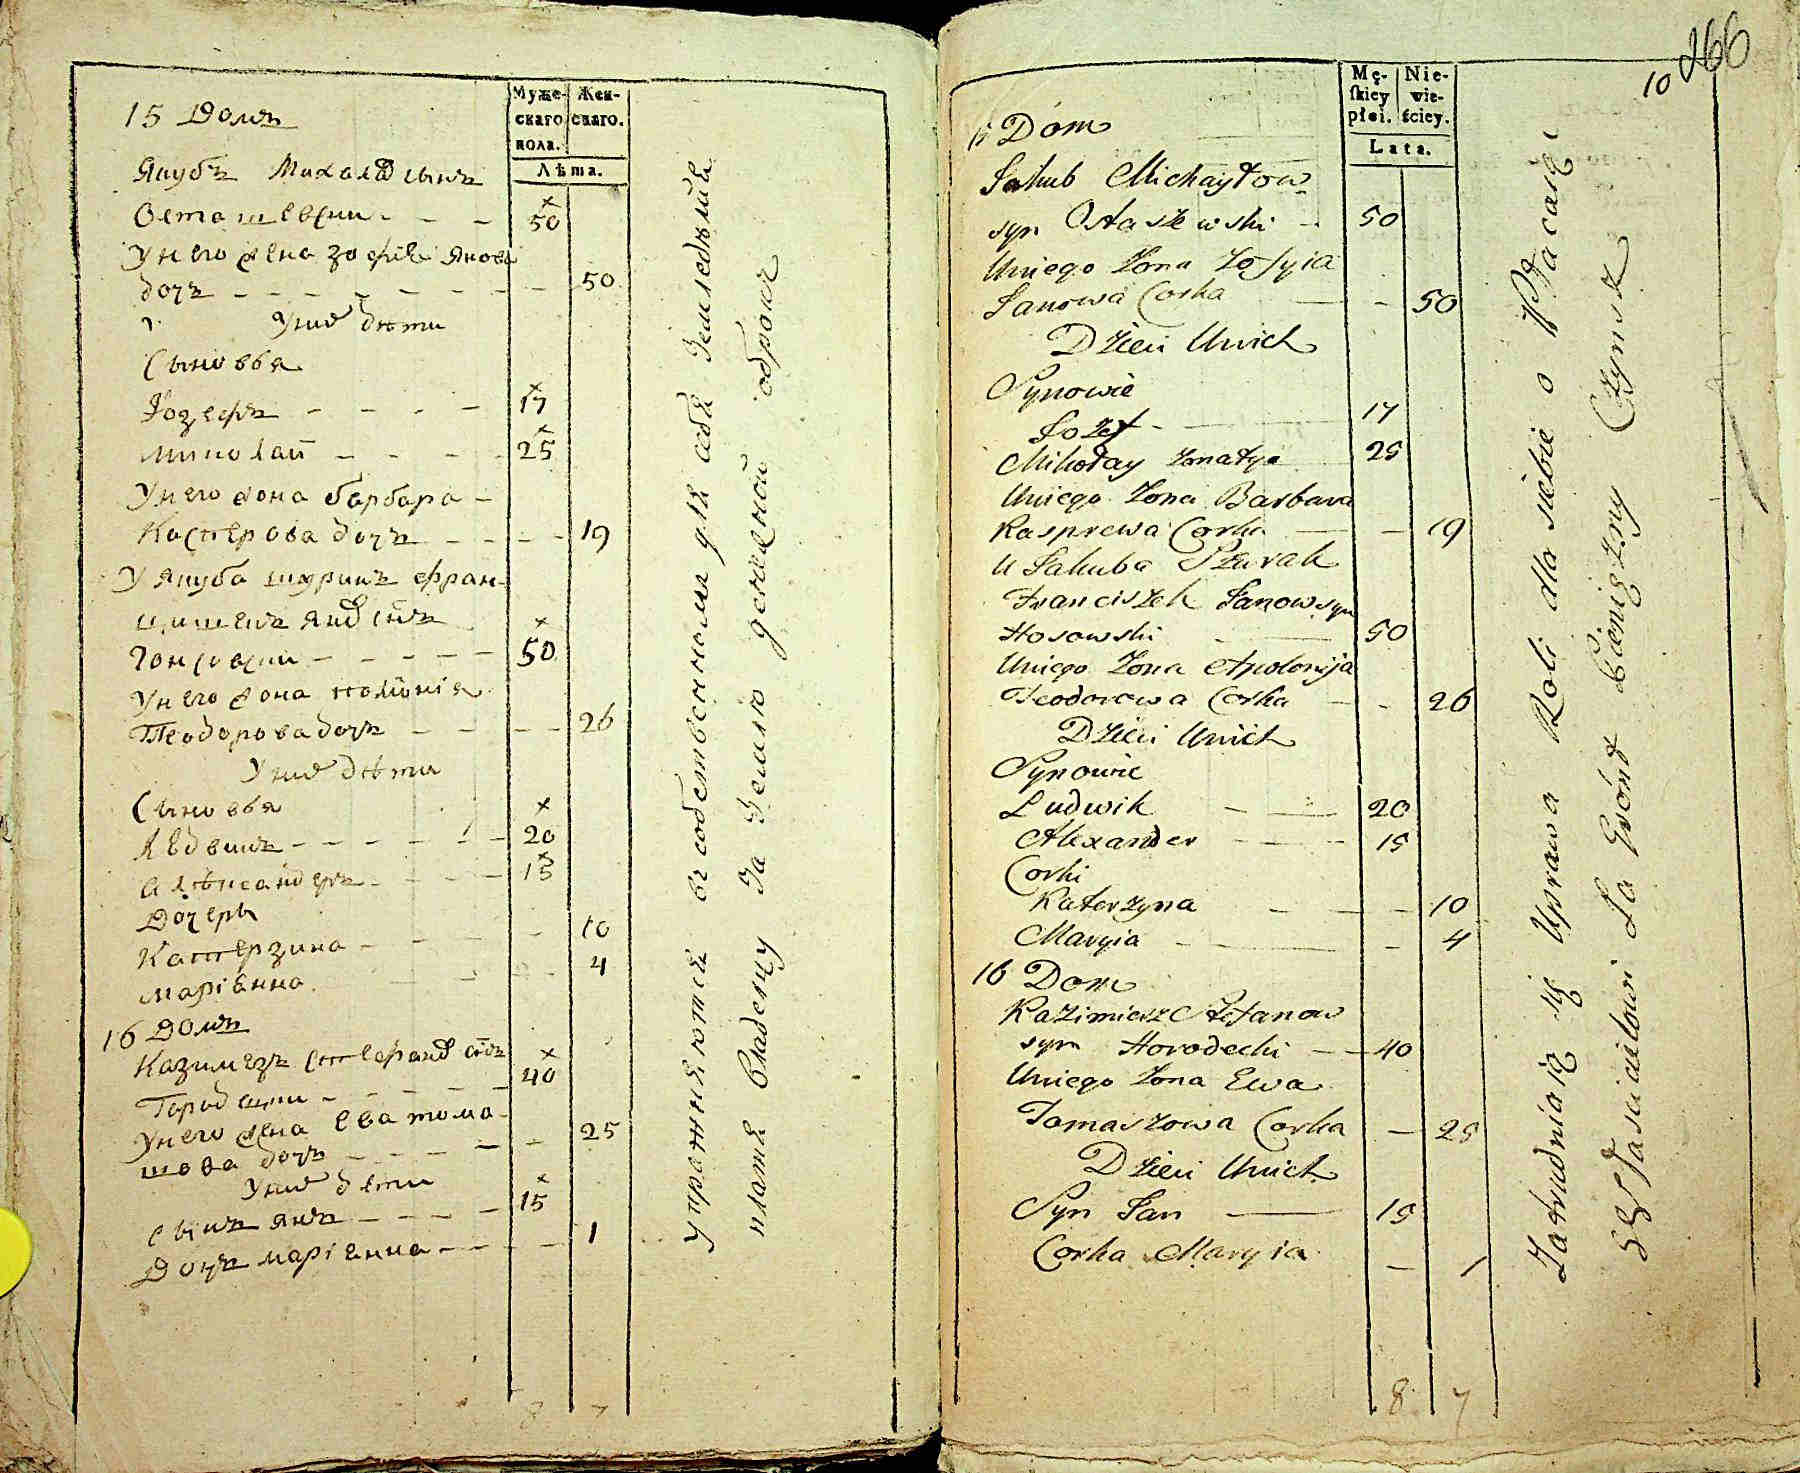 Муже-
скаго
пола.
Жен-
скаго.
Лѣта.
15 Домъ
Якубъ Михаловъ сынъ
Осташевски - - - 50
У него жена Зофія Янова
дочъ - - - 50
У нихъ дѣти
Сыновья
Іозефъ - - - - 17
Миколай - - - - 25
У него жона Барбара -
Касперова дочъ - - - - 19
У Якуба шуринъ Фран-
цишекъ Яновъ сынъ
- - - - - 50
У него жона
Теодорова дочъ - - - - 26
У нихъ дѣти
Сыновья
Людвикъ - - - - - - 20
Александеръ - - - - 15
Дочеры
Катерзина - - - - 10
Маріанна - - - - 4
16 Домъ
Казимежъ Стефановъ сынъ
Городецки - - - - 40
У него жена Ева Тома-
шова дочъ - - - - 25
У нихъ дѣти
сынъ Янъ - - - - 15
Дочъ Маріанна - - - - 1
8 7
упражняются въ собственномъ для себя земледѣлии
платя владельцу за землю денежной оброкъ
266
10
Mę-
skiey
płci.
Nie-
wie-
ściey.
Lata.
15 Dom
Jakub Michayłow
syn Ostaszewski - 50
Uniego Żona Zofyia
Janowa Corka - 50
Dzieci Unich
Synowie
Jozef - 17
Mikołay Żonaty 25
Uniego Żona Barbara
Kasprewa Corka - 19
U Jakuba Szurak
Franciszek Janow syn
Hosowski 50
Uniego Żona Apolonija
Teodorowa Corka - - 26
Dzieci Unich
Synowie
Ludwik - 20
Alexander - - - 15
Corki
Katerzyna - - - 10
Maryia - - 4
16 Dom
Kazimierz Stefanow
syn Horodecki - - 40
Uniego Żona Ewa
Tomaszowa Corka - 25
Dzieci Unich
Syn Jan - 15
Corka Maryia - 1
8. 7
Zatrudniaią się Uprawą Roli dla siebie o Płacaiąc
Właścicielowi Za Grónt Pieniężny Czynsz